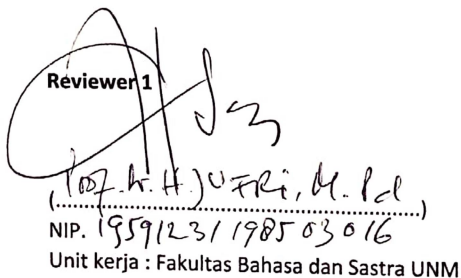 Reviewer 1
(Prof. Dr. H. JUFRI, M.Pd)
NIP. 19591231 1985 03 016
Unit kerja : Fakultas Bahasa dan Sastra UNM